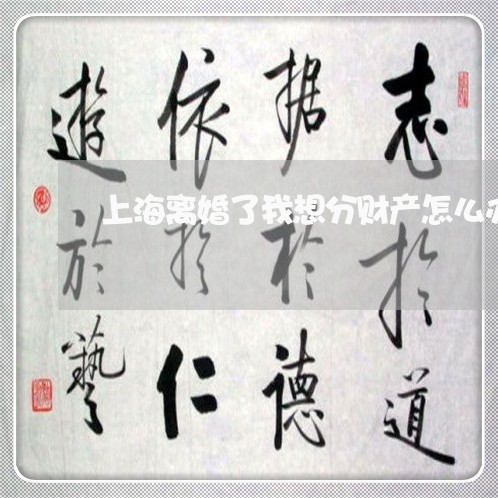 志於道
据於德
依於仁
遊於藝
上海离婚了我想分财产怎么